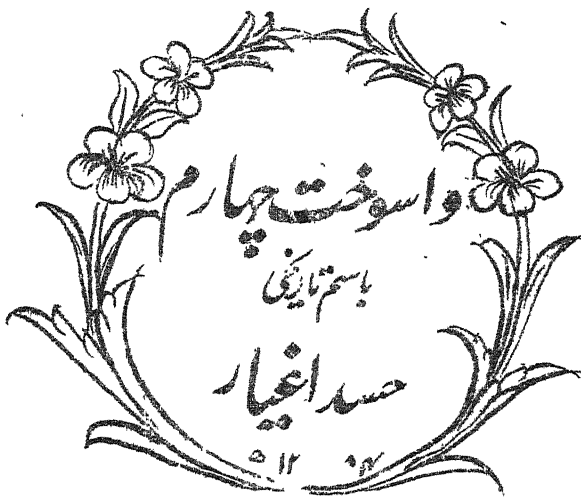 واسوخت چہارم
باسم تاریخی
حسد اغیار
۱۲۸۴ھ